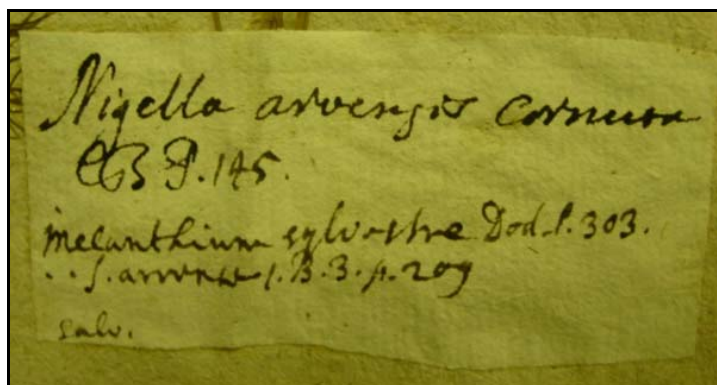 Nigella arvensis cornuta
CB P. 145.
melanthium sylvestre Dod. P. 303.
J. B. 3. p. 209
salv.